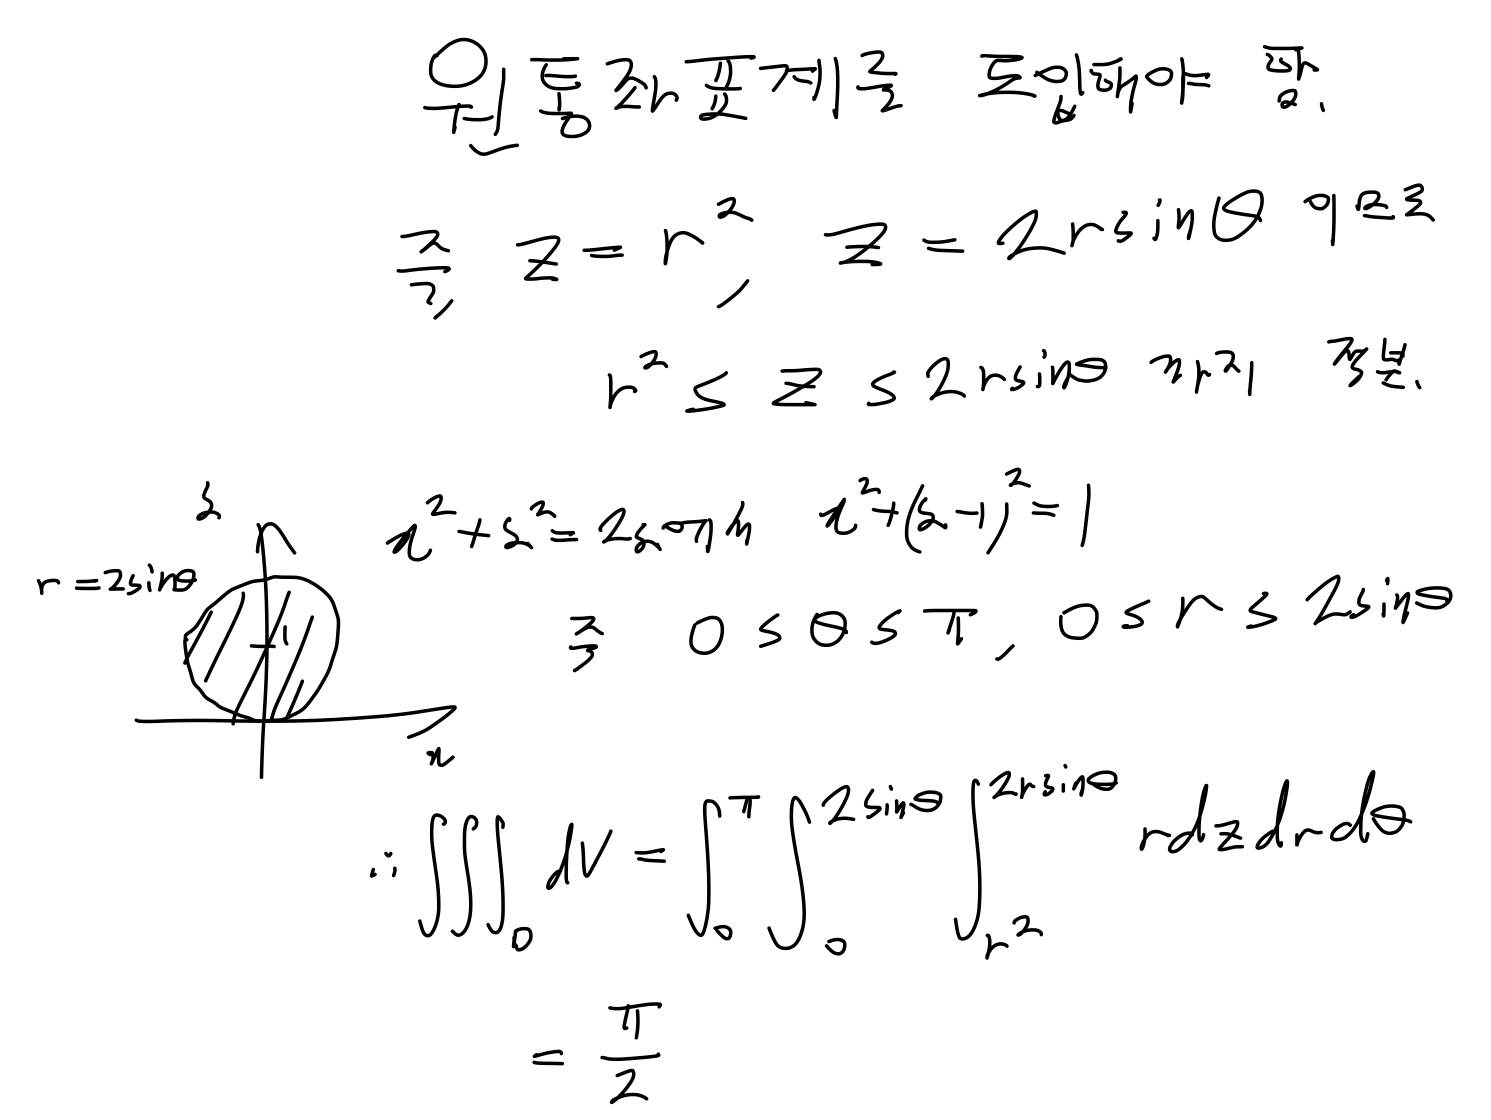 원통좌표계를 도입해야 함.
즉, z = r², z = 2rsinθ 이므로
r² ≤ z ≤ 2rsinθ 까지 적분.
x² + y² = 2y에서 x² + (y-1)² = 1
즉 0 ≤ θ ≤ π, 0 ≤ r ≤ 2sinθ
y
r = 2sinθ
1
x
∴ ∭_D dV = ∫_0^π ∫_0^{2sinθ} ∫_{r²}^{2rsinθ} r dz dr dθ
= π/2